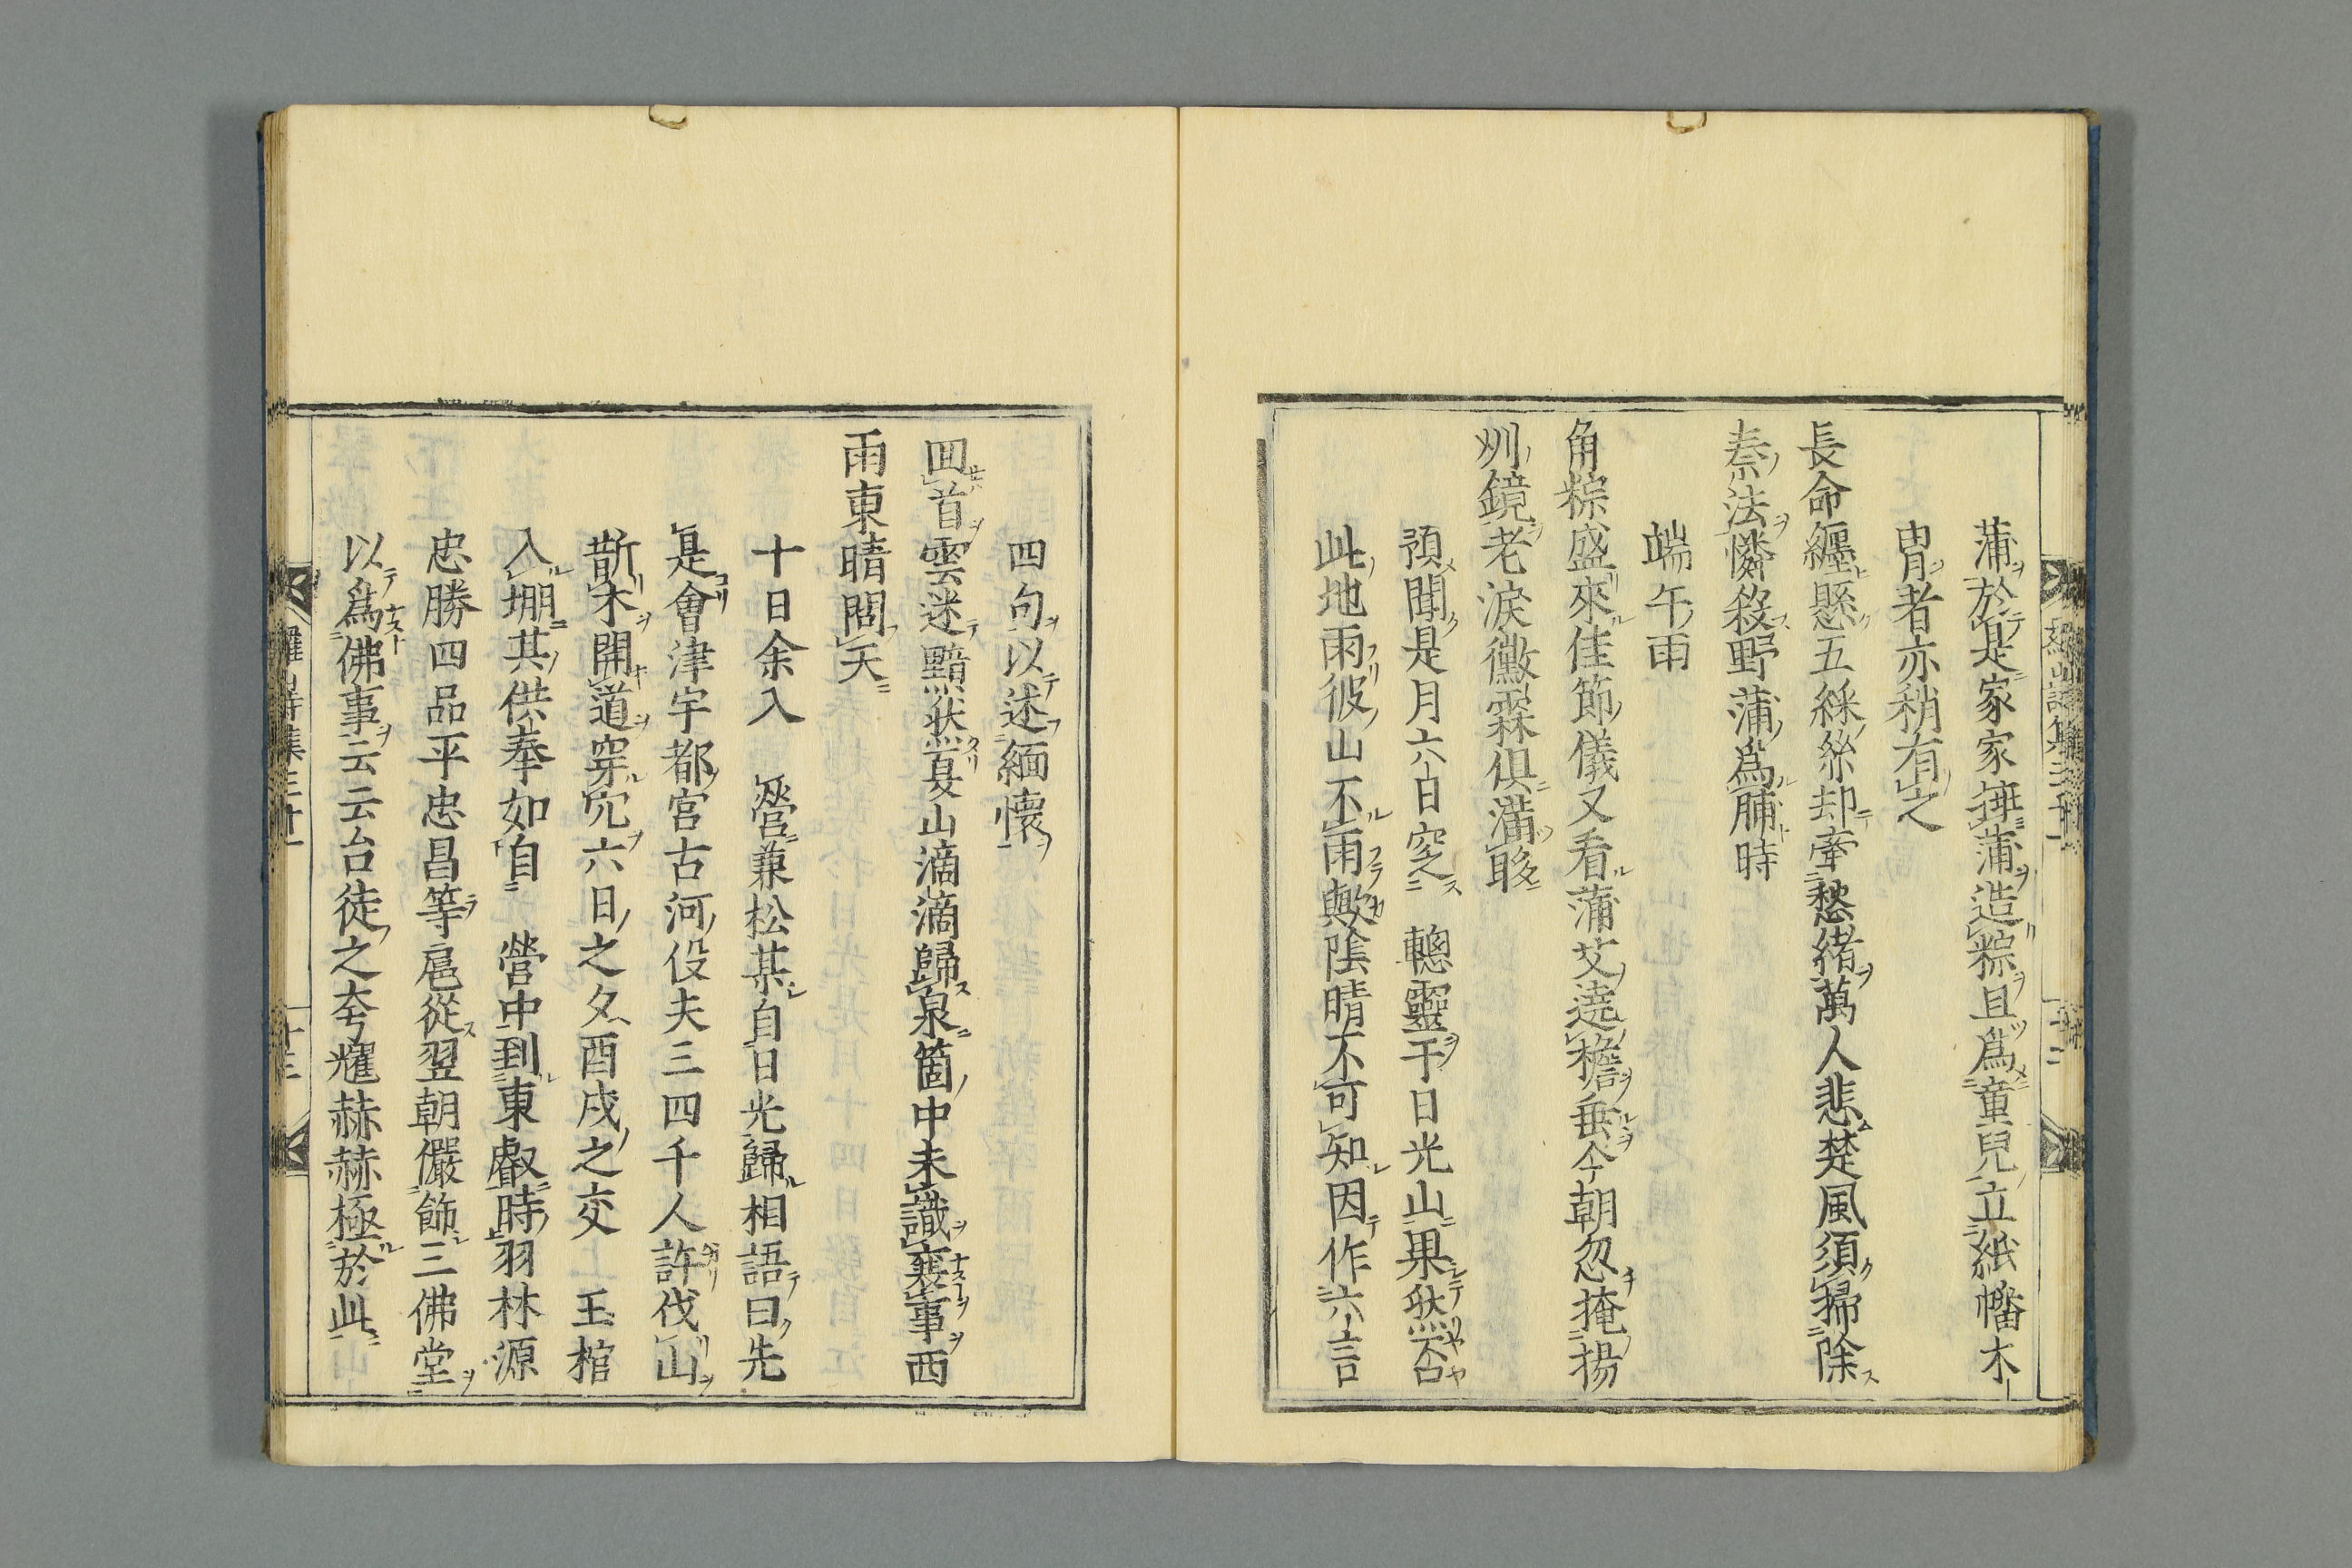 蒲於是家家葺蒲造粽且爲童兒立紙幡木
冑者亦稍有之
長命纒懸五綵絲却牽愁緒萬人悲楚風須掃除
秦法憐殺野蒲爲脯時
端午雨
角粽盛來佳節儀又看蒲艾遶檐垂今朝忽掩揚
州鏡老淚黴霖俱滿眵
預聞是月六日窆 轊靈于日光山果然否
此地雨彼山不雨歟陰晴不可知因作六言
四句以述緬懷
回首雲迷黯然夏山滴滴歸泉箇中未識襄事西
雨東晴問天
十日余入 營兼松某自日光歸相語曰先
是會津宇都宮古河役夫三四千人許伐山
斮木開道穿穴六日之夕酉戌之交 玉棺
入堋其供奉如自 營中到東叡時羽林源
忠勝四品平忠昌等扈從翌朝儼飾三佛堂
以爲佛事云云台徒之夸耀赫赫極於此
羅山詩集三十一
十三